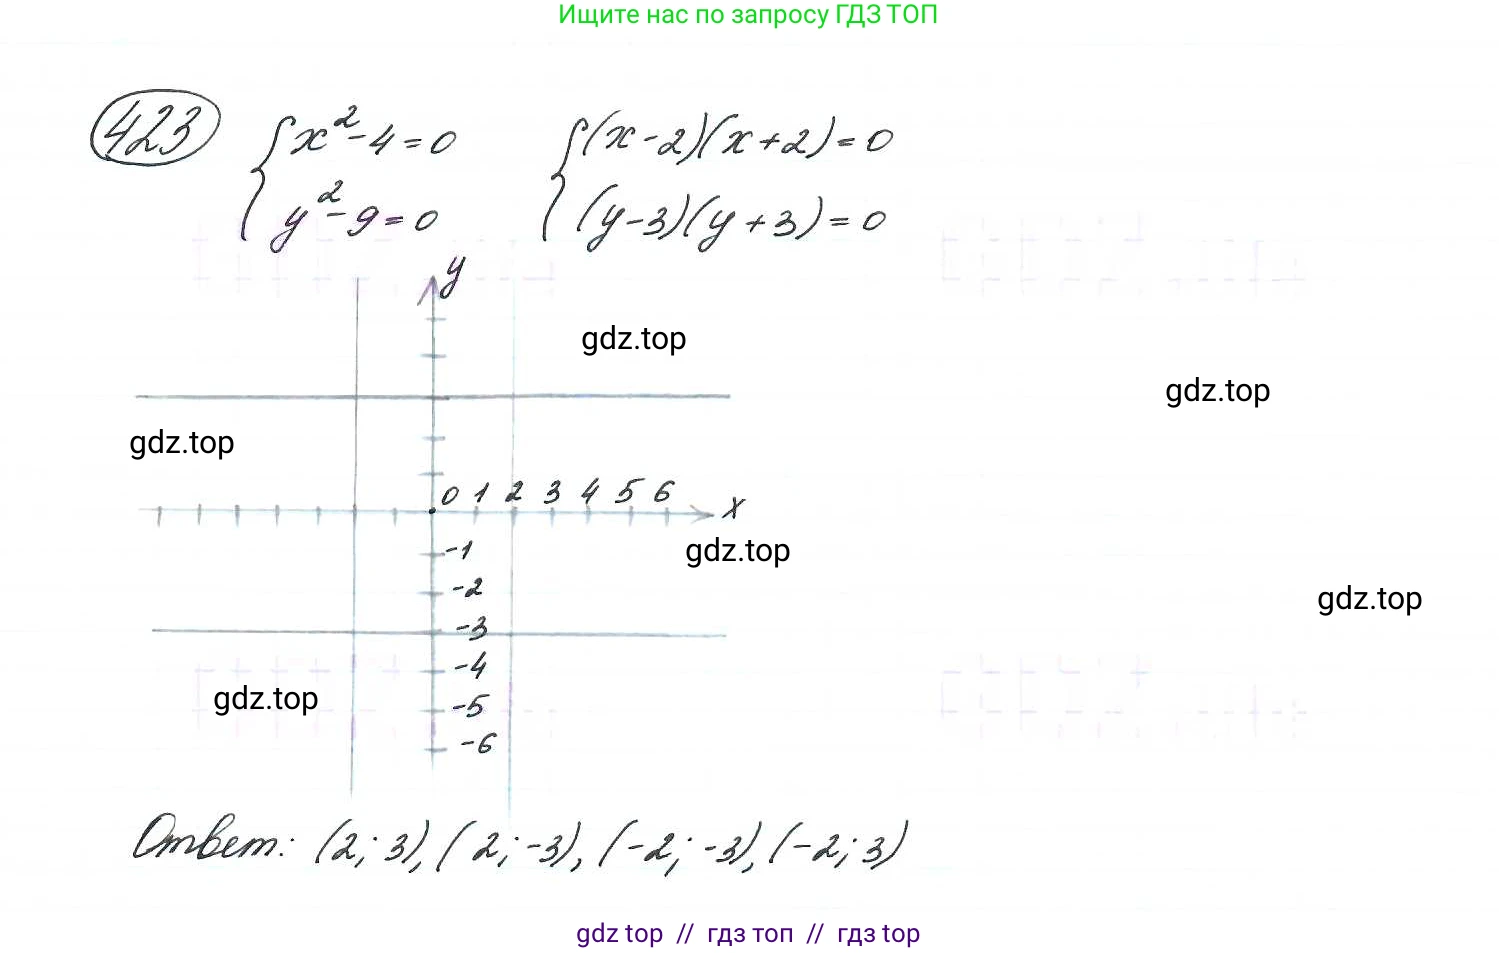 Ищите нас по запросу ГДЗ ТОП
423 { x² - 4 = 0 { (x - 2)(x + 2) = 0
y² - 9 = 0 (y - 3)(y + 3) = 0
y
gdz.top
gdz.top
gdz.top
0 1 2 3 4 5 6 x
-1
gdz.top
-2
gdz.top
-3
-4
gdz.top
-5
-6
Ответ: (2; 3), (2; -3), (-2; -3), (-2; 3)
gdz top // гдз топ // гдз top